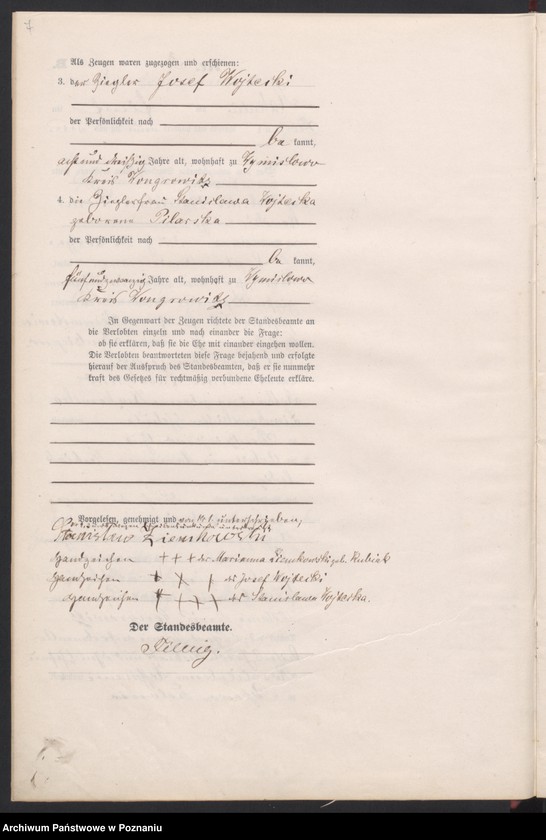 Als Zeugen waren zugezogen und erschienen:
3. der Ziegler Josef Wojtecki
der Persönlichkeit nach
be kannt,
acht und dreißig Jahre alt, wohnhaft zu
Kreis Wongrowitz
4. die Zieglerfrau Stanislawa Wojtecka
geborene Pilarska
der Persönlichkeit nach
be kannt,
fünfundzwanzig Jahre alt, wohnhaft zu
Kreis Wongrowitz
In Gegenwart der Zeugen richtete der Standesbeamte an
die Verlobten einzeln und nach einander die Frage:
ob sie erklären, daß sie die Ehe mit einander eingehen wollen.
Die Verlobten beantworteten diese Frage bejahend und erfolgte
hierauf der Ausspruch des Standesbeamten, daß er sie nunmehr
kraft des Gesetzes für rechtmäßig verbundene Eheleute erkläre.
Vorgelesen, genehmigt und unterschrieben,
Stanislaw Ziemkowski
Handzeichen +++ der Marianna Ziemkowski geb. Kubiak
Handzeichen des Josef Wojtecki
Handzeichen der Stanislawa Wojtecka.
Der Standesbeamte.
Archiwum Państwowe w Poznaniu